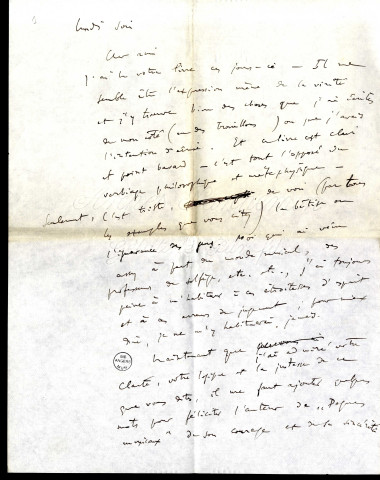 Lundi soir
Cher ami
J'ai lu votre livre ces jours-ci — Il me
semble être l'expression même de la vérité
et j'y trouve bien des choses que j'ai écrites
de mon côté (en des brouillons) ou que j'avais
l'intention d'écrire. Et ce livre est clair
et point bavard — c'est tout l'opposé du
verbiage philosophique et métaphysique —
Seulement, c'est triste, de voir (par tous
les exemples que vous citez) la bêtise ou
l'ignorance des gens. Moi qui ai vécu
assez à part du monde musical, des
professeurs de solfège, etc. etc., j'ai toujours
peine à m'habituer à ces étroitesses d'esprit
et à ces erreurs de jugement ; pour mieux
dire, je ne m'y habituerai jamais.
Maintenant que j'ai admiré votre
clarté, votre logique et la justesse de ce
que vous dites, il me faut ajouter quelques
mots pour féliciter l'auteur de "Dogmes
musicaux" de son courage et de sa sincérité